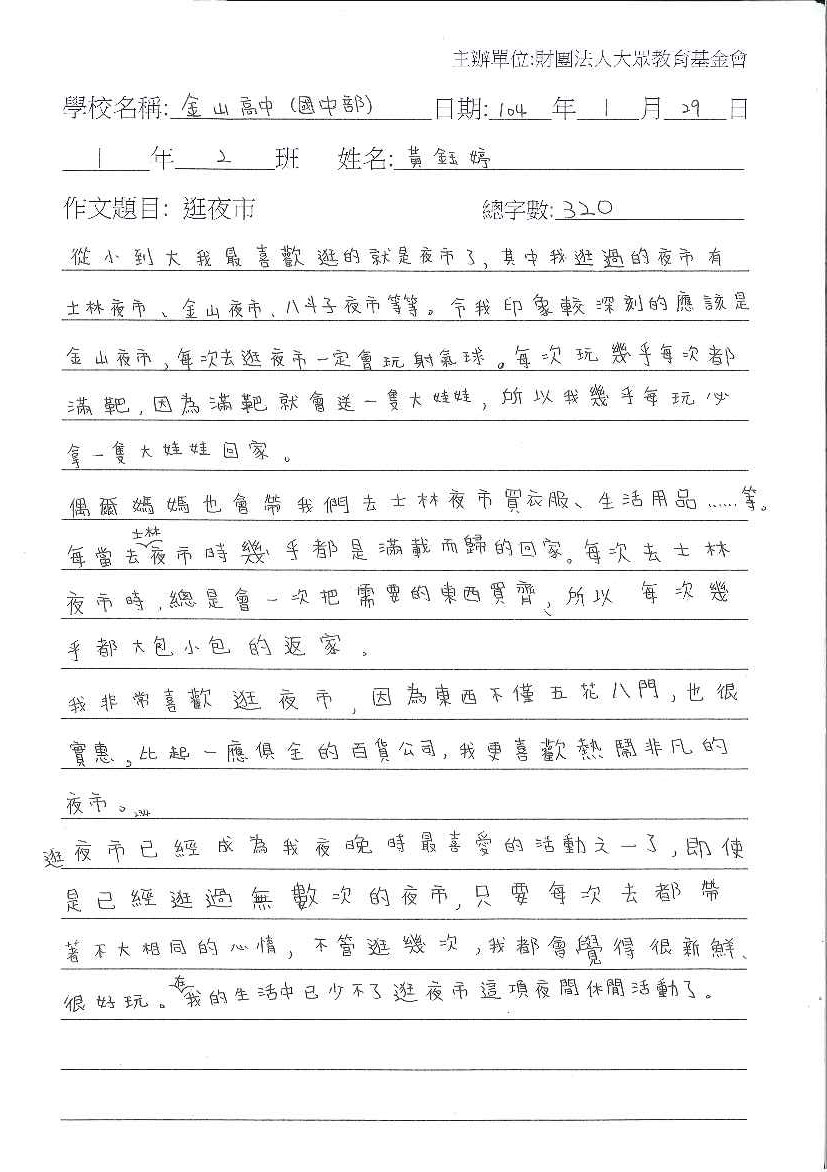 主辦單位:財團法人大眾教育基金會
學校名稱: 金山高中(國中部) 日期: 104 年 1 月 29 日
1 年 2 班 姓名: 黃鈺婷
作文題目: 逛夜市 總字數: 320
從小到大我最喜歡逛的就是夜市了,其中我逛過的夜市有
士林夜市、金山夜市、八斗子夜市等等。令我印象較深刻的應該是
金山夜市,每次去逛夜市一定會玩射氣球。每次玩幾乎每次都
滿靶,因為滿靶就會送一隻大娃娃,所以我幾乎每玩必
拿一隻大娃娃回家。
偶爾媽媽也會帶我們去士林夜市買衣服、生活用品……等。
每當去士林夜市時幾乎都是滿載而歸的回家。每次去士林
夜市時,總是會一次把需要的東西買齊、所以每次幾
乎都大包小包的返家。
我非常喜歡逛夜市,因為東西不僅五花八門,也很
實惠,比起一應俱全的百貨公司,我更喜歡熱鬧非凡的
夜市。234
逛夜市已經成為我夜晚時最喜愛的活動之一了,即使
是已經逛過無數次的夜市,只要每次去都帶
著不大相同的心情,不管逛幾次,我都會覺得很新鮮、
很好玩。在我的生活中已少不了逛夜市這項夜間休閒活動了。